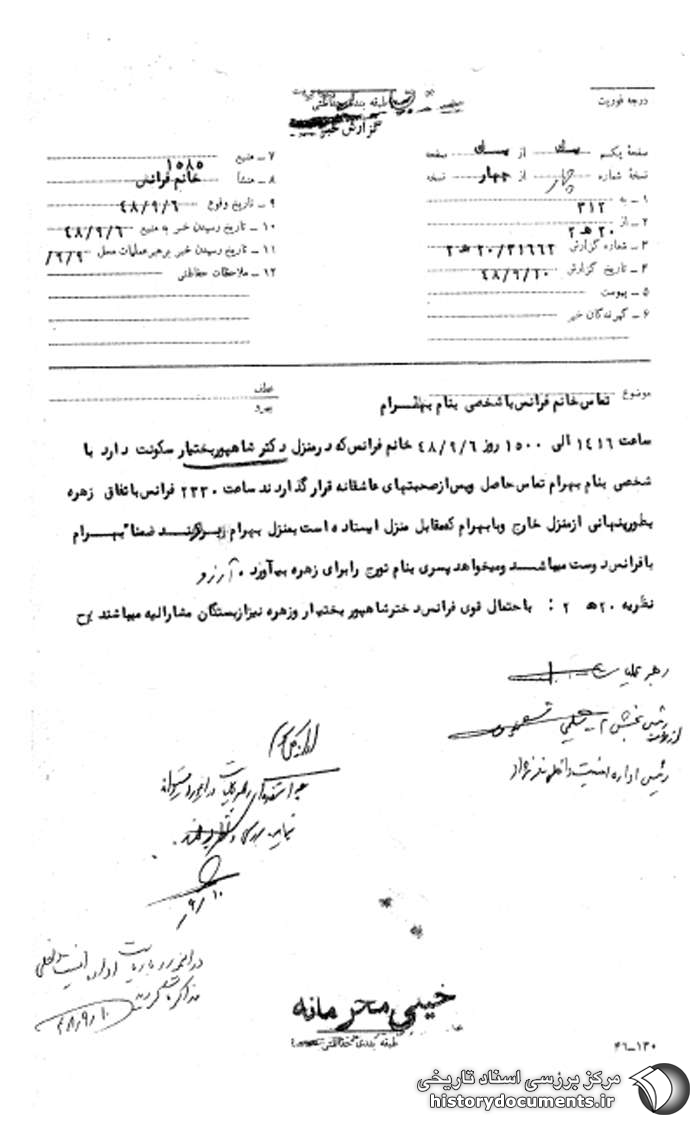 درجه فوریت
طبقه بندی حفاظتی
گزارش خبر
صفحهٔ یکم از صفحه
نسخهٔ شماره چهار از چهار نسخه
۱ ـ به ۳۱۲
۲ ـ از ۲۰ ه‍ ۲
۳ ـ شماره گزارش ۳۱۶۶۲/۲۰ ه‍ ۲
۴ ـ تاریخ گزارش ۴۸/۹/۱۰
۵ ـ پیوست
۶ ـ گیرندگان خبر
۷ ـ منبع ۱۵۸۵
۸ ـ منشأ خانم فرانس
۹ ـ تاریخ وقوع ۴۸/۹/۶
۱۰ ـ تاریخ رسیدن خبر به منبع ۴۸/۹/۶
۱۱ ـ تاریخ رسیدن خبر برهبر عملیات محل ۹/۹/
۱۲ ـ ملاحظات حفاظتی
موضوع تماس خانم فرانس با شخصی بنام بهرام
عطف
پیرو
ساعت ۱۴۱۶ الی ۱۵۰۰ روز ۴۸/۹/۶ خانم فرانس که در منزل دکتر شاهپور بختیار سکونت دارد با
شخصی بنام بهرام تماس حاصل وپس از صحبتهای عاشقانه قرار گذاردند ساعت ۲۳۳۰ فرانس باتفاق زهره
بطور پنهانی از منزل خارج وبا بهرام که مقابل منزل ایستاده است بمنزل بهرام بروند ضمناً بهرام
با فرانس دوست میباشد ومیخواهد پسری بنام تورج را برای زهره بیآورد ۰ آرزو
نظریه ۲۰ ه‍ ۲ : با احتمال قوی فرانس دختر شاهپور بختیار وزهره نیز از بستگان مشارالیه میباشند ح
رهبر عملیات
رئیس بخش ۲
رئیس اداره امنیت داخلی
۹/۱۰
۴۸/۹/۱۰
خیلی محرمانه
طبقه بندی حفاظتی
۴۶-۱۳۰
مرکز بررسی اسناد تاریخی
historydocuments.ir